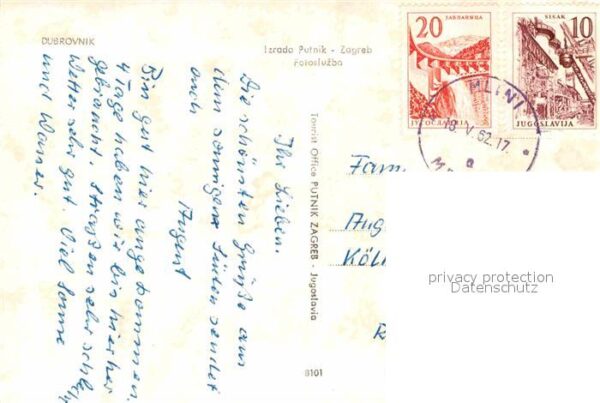 DUBROVNIK
Izrada Putnik - Zagreb
Fotoslužba
20
JABLANICA
JUGOSLAVIJA
SISAK
10
JUGOSLAVIJA
MLINI
18.V.62.17.
a
Ihr Lieben.
Die schönsten Grüße aus
dem sonnigen Süden sendet
euch
August
Bin gut hier angekommen.
4 Tage haben wir bis hierher
gebraucht. Straßen sehr schle
Wetter sehr gut. Viel Sonne
und Warmer.
Tourist Office PUTNIK ZAGREB - Jugoslavia
8101
Fam
Aug
Köl
R
privacy protection
Datenschutz